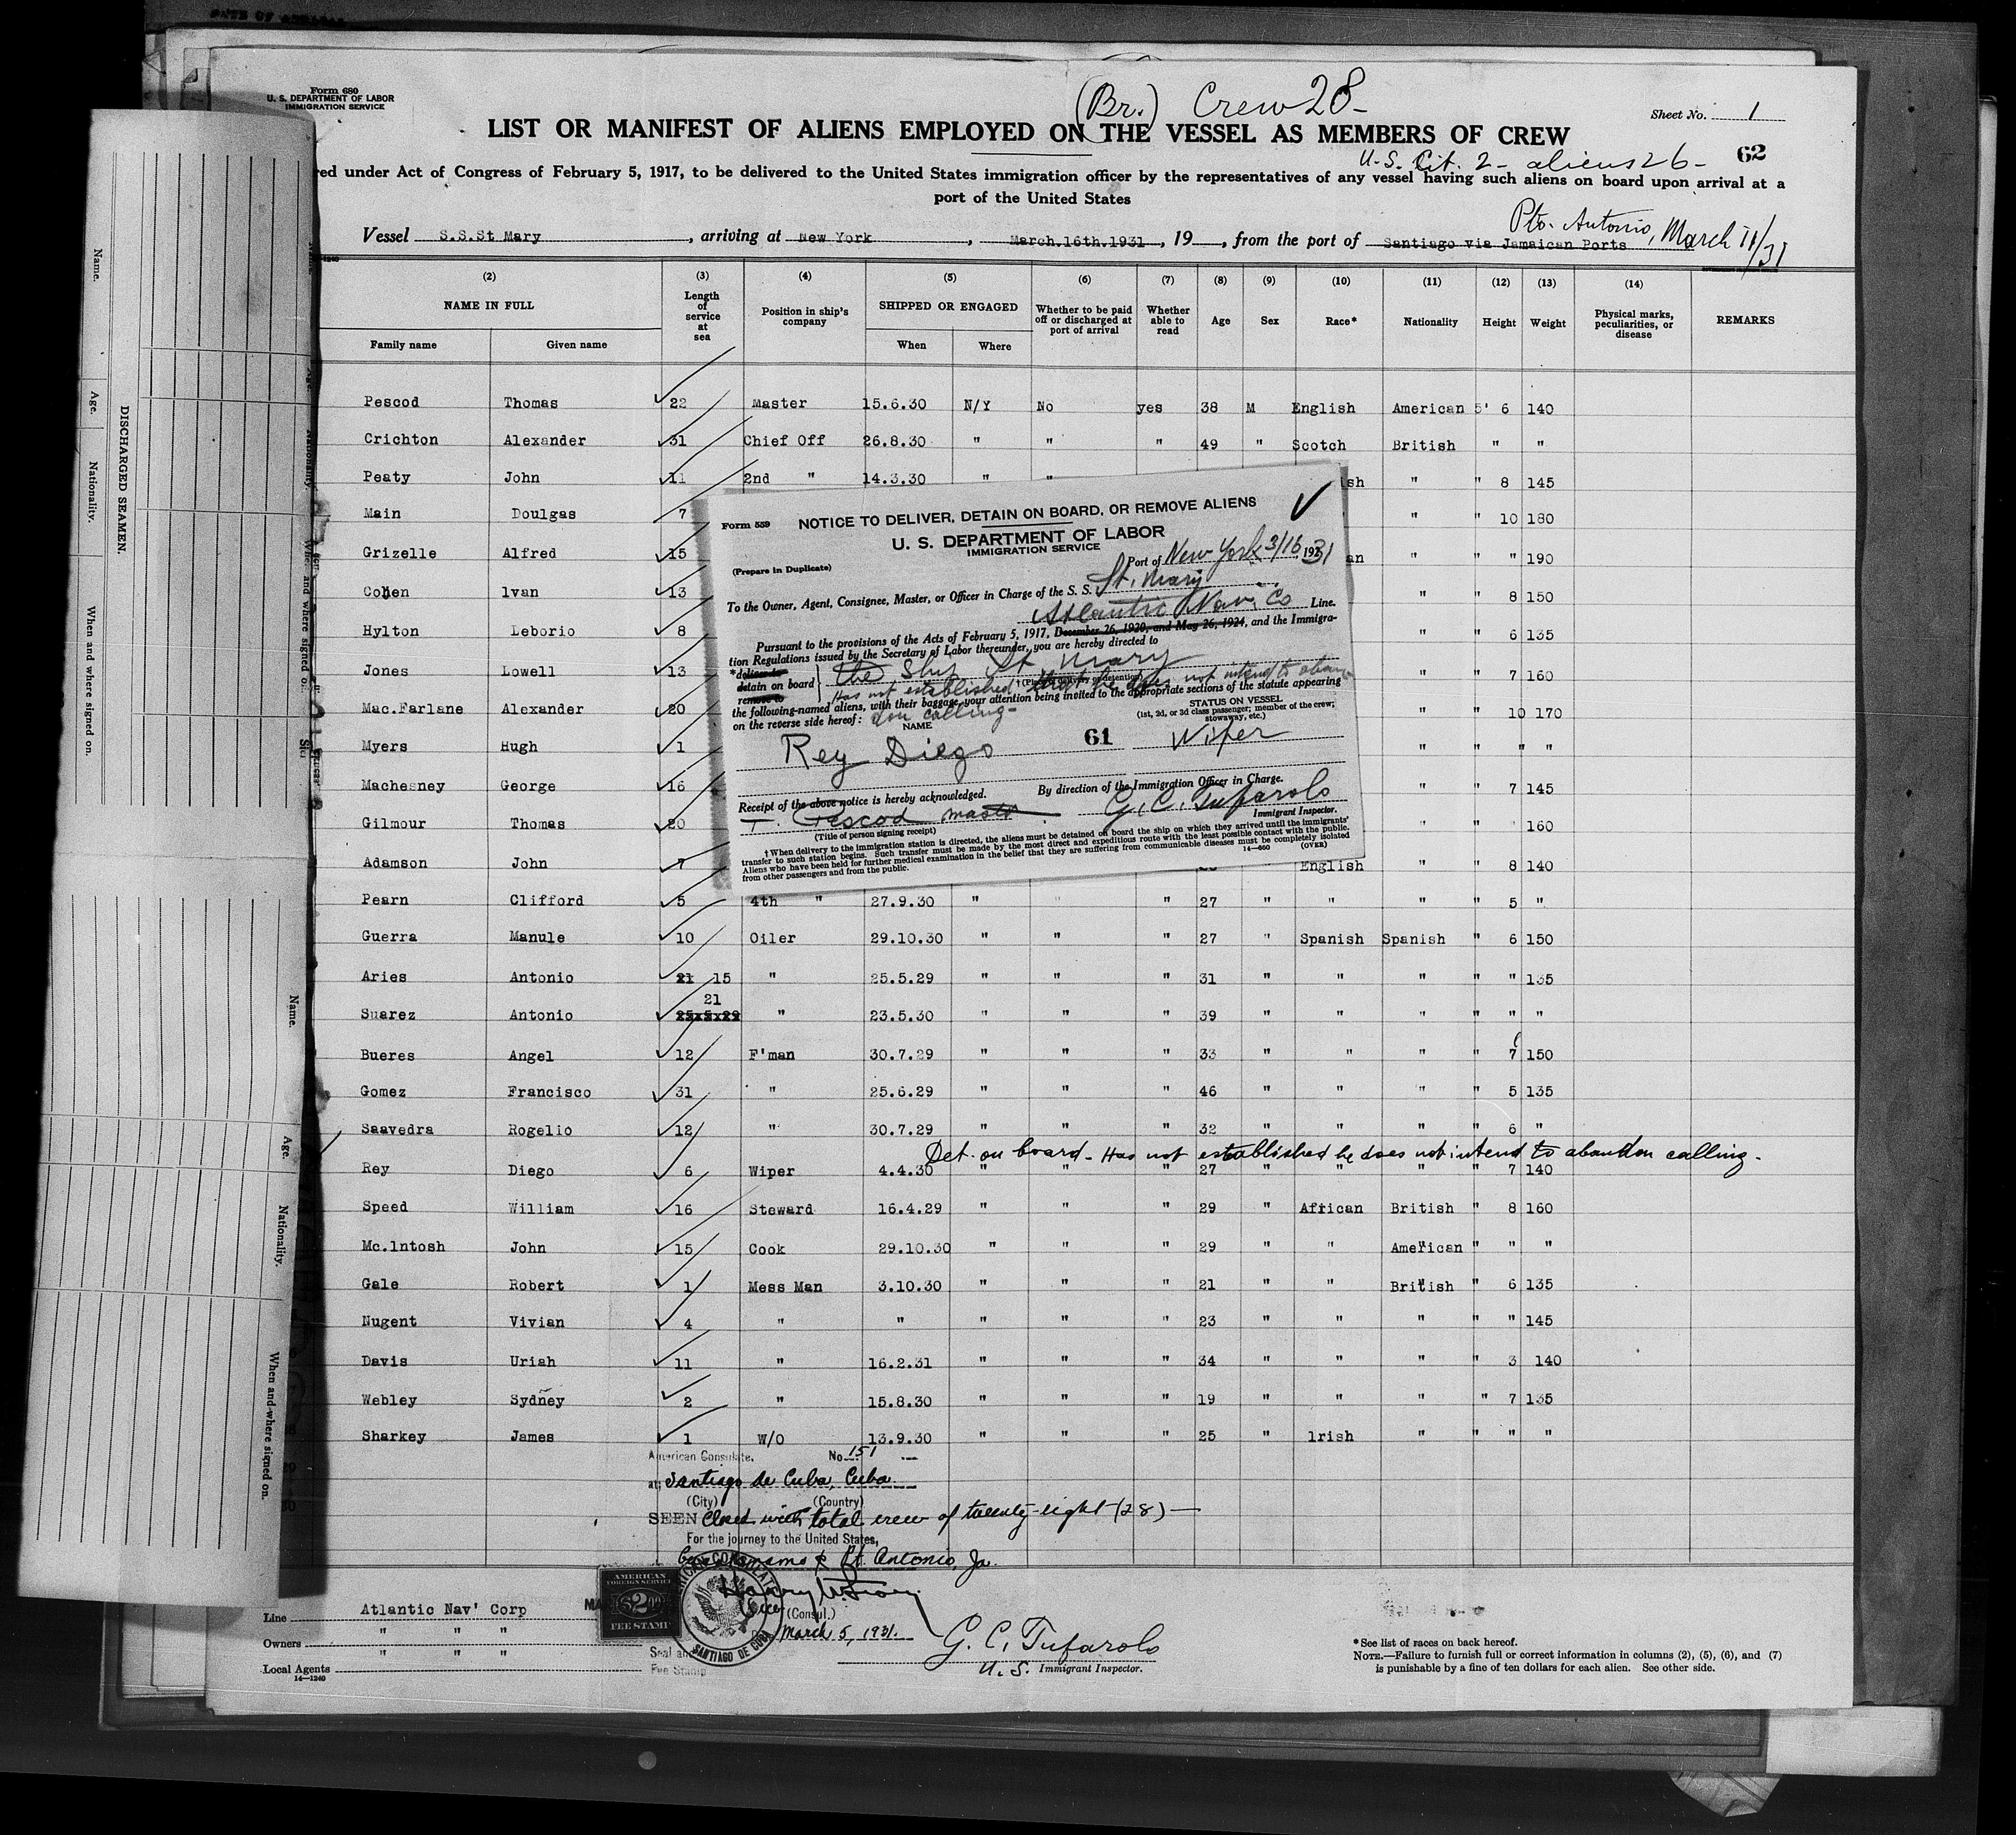 Form 680
U. S. DEPARTMENT OF LABOR
IMMIGRATION SERVICE
(Br.) Crew 28-
Sheet No. 1
LIST OR MANIFEST OF ALIENS EMPLOYED ON THE VESSEL AS MEMBERS OF CREW
U.S. Cit. 2- aliens 26- 62
red under Act of Congress of February 5, 1917, to be delivered to the United States immigration officer by the representatives of any vessel having such aliens on board upon arrival at a
port of the United States
Pto. Antonio, March 11/31
Vessel S.S.St Mary, arriving at New York, March.16th.1931, 19, from the port of Santiago via Jamaican Ports
(2) (3) (4) (5) (6) (7) (8) (9) (10) (11) (12) (13) (14)
NAME IN FULL Length of service at sea Position in ship's company SHIPPED OR ENGAGED Whether to be paid off or discharged at port of arrival Whether able to read Age Sex Race* Nationality Height Weight Physical marks, peculiarities, or disease REMARKS
Family name Given name When Where
Pescod Thomas 22 Master 15.6.30 N/Y No yes 38 M English American 5' 6 140
Crichton Alexander 31 Chief Off 26.8.30 " " " 49 " Scotch British " "
Peaty John 11 2nd " 14.3.30 " " ish " " 8 145
Main Doulgas 7 " " 10 180
Grizelle Alfred 15 an " " " 190
Cohen Ivan 13 " " 8 150
Hylton Leborio 8 " " 6 135
Jones Lowell 13 " " 7 160
Mac.Farlane Alexander 20 " " 10 170
Myers Hugh 1 " " " "
Machesney George 16 " " 7 145
Gilmour Thomas 20 " " 160
Adamson John 7 English " " 8 140
Pearn Clifford 5 4th " 27.9.30 " " " 27 " " " " 5 "
Guerra Manule 10 Oiler 29.10.30 " " " 27 " Spanish Spanish " 6 150
Aries Antonio 21 15 " 25.5.29 " " " 31 " " " " " 135
21
Suarez Antonio 25x5x29 " 23.5.30 " " " 39 " " " " " "
Bueres Angel 12 F'man 30.7.29 " " " 33 " " " " 7 150
Gomez Francisco 31 " 25.6.29 " " " 46 " " " " 5 135
Saavedra Rogelio 12 " 30.7.29 " " " 32 " " " " 6 "
Det. on board - Has not established he does not intend to abandon calling.
Rey Diego 6 Wiper 4.4.30 " " " 27 " " " " 7 140
Speed William 16 Steward 16.4.29 " " " 29 " African British " 8 160
Mc.lntosh John 15 Cook 29.10.30 " " " 29 " " American " " "
Gale Robert 1 Mess Man 3.10.30 " " " 21 " " British " 6 135
Nugent Vivian 4 " " " " " 23 " " " " " 145
Davis Uriah 11 " 16.2.31 " " " 34 " " " " 3 140
Webley Sydney 2 " 15.8.30 " " " 19 " " " " 7 135
Sharkey James 1 W/O 13.9.30 " " " 25 " lrish " " " "
Form 559 NOTICE TO DELIVER, DETAIN ON BOARD, OR REMOVE ALIENS
U. S. DEPARTMENT OF LABOR
IMMIGRATION SERVICE
(Prepare in Duplicate) Port of New York 3/16 1931
To the Owner, Agent, Consignee, Master, or Officer in Charge of the S. S. St. Mary
Atlantic Nav. Co Line.
Pursuant to the provisions of the Acts of February 5, 1917, December 26, 1920, and May 26, 1924, and the Immigra-
tion Regulations issued by the Secretary of Labor thereunder, you are hereby directed to
*deliver to
detain on board the Ship St. Mary
remove to
Has not established that he does not intend to aban-
the following-named aliens, with their baggage, your attention being invited to the appropriate sections of the statute appearing
on the reverse side hereof: don calling-
NAME
STATUS ON VESSEL
(1st, 2d, or 3d class passenger; member of the crew;
stowaway, etc.)
Rey Diego 61 Wiper
Receipt of the above notice is hereby acknowledged. By direction of the Immigration Officer in Charge.
T. Pescod master G. C. Tufarolo
(Title of person signing receipt) Immigrant Inspector.
† When delivery to the immigration station is directed, the aliens must be detained on board the ship on which they arrived until the immigrants'
transfer to such station begins. Such transfer must be made by the most direct and expeditious route with the least possible contact with the public.
Aliens who have been held for further medical examination in the belief that they are suffering from communicable diseases must be completely isolated
from other passengers and from the public. 14-660 (OVER)
American Consulate, No. 151
at Santiago de Cuba, Cuba
(City) (Country)
SEEN Closed with total crew of twenty-eight (28)-
For the journey to the United States,
& Pt. Antonio, Ja.
Vice (Consul.)
March 5, 1931.
AMERICAN
FOREIGN SERVICE
$2.00
FEE STAMP
SANTIAGO DE CUBA
Seal and
Fee Stamp
Line Atlantic Nav' Corp
Owners " " "
Local Agents " " "
14-1240
G. C. Tufarolo
U. S. Immigrant Inspector.
*See list of races on back hereof.
NOTE.—Failure to furnish full or correct information in columns (2), (5), (6), and (7)
is punishable by a fine of ten dollars for each alien. See other side.
DISCHARGED SEAMEN.
Name.
Age.
Nationality.
When and where signed on.
Name.
Age.
Nationality.
When and where signed on.